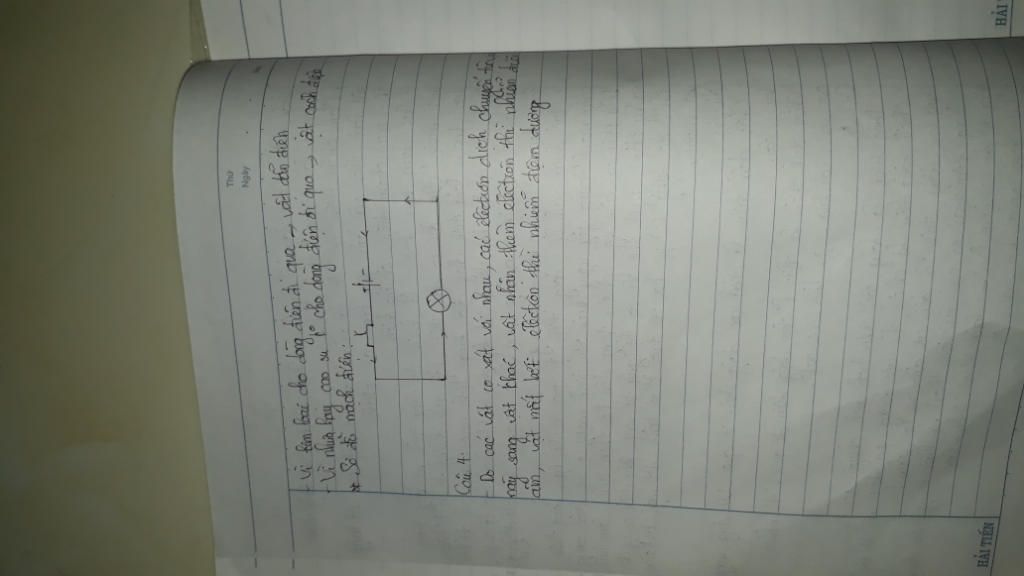 Thứ
Ngày
No.
- Vì kim loại cho dòng điện đi qua → vật dẫn điện
- Vì nhựa hay cao su ko cho dòng điện đi qua → vật cách điện
* Sơ đồ mạch điện:
Câu 4:
- Do các vật cọ xát với nhau, các electron dịch chuyển từ
này sang vật khác, vật nhận thêm electron thì nhiễm điện
âm, vật mất bớt electron thì nhiễm điệm dương
HẢI TIẾN
HẢI